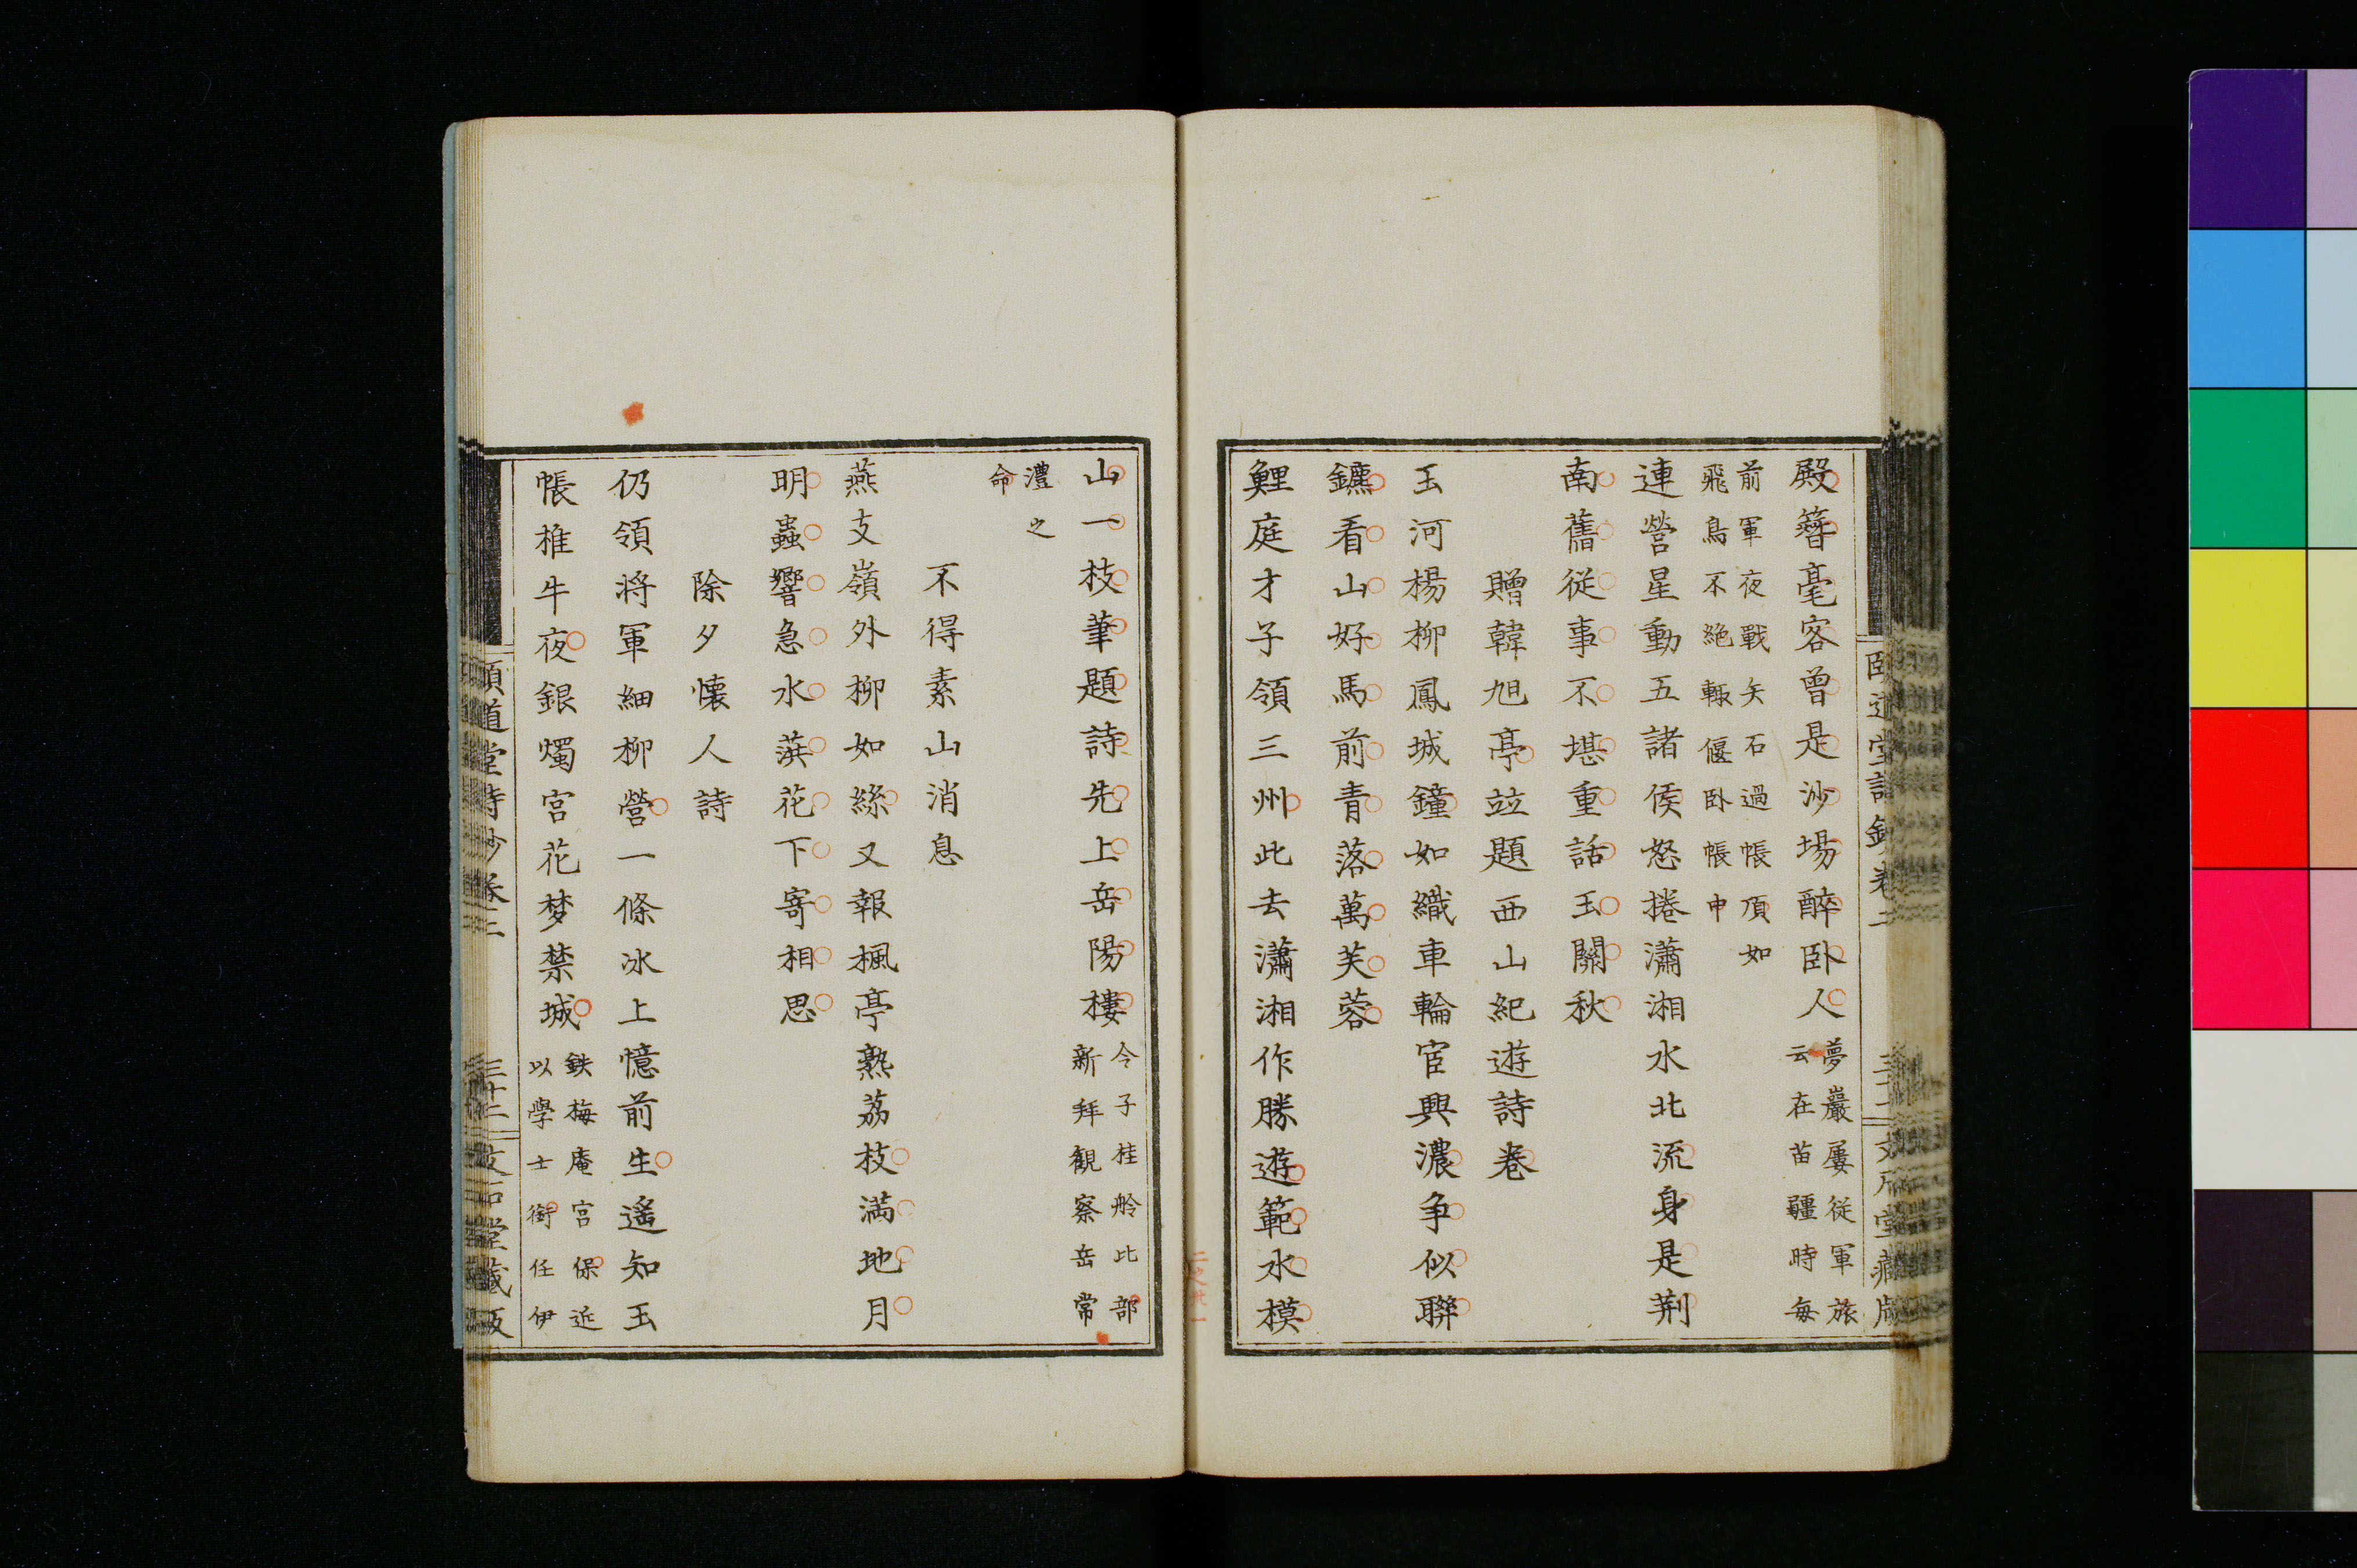 殿簪毫客曾是沙場醉卧人夢巖屢從軍旅
云在苗疆時每
前軍夜戰矢石過帳頂如
飛鳥不絶輙偃卧帳中
連營星動五諸侯怒捲瀟湘水北流身是荆
南舊從事不堪重話玉關秋
贈韓旭亭竝題西山紀遊詩卷
玉河楊柳鳳城鐘如織車輪宦興濃争似聯
鑣看山好馬前青落萬芙蓉
鯉庭才子領三州此去瀟湘作勝遊範水模
山一枝筆題詩先上岳陽樓令子桂舲比部
新拜観察岳常
澧之
命
不得素山消息
燕支嶺外柳如絲又報楓亭熟荔枝満地月
明蟲響急水葓花下寄相思
除夕懷人詩
仍領将軍細柳營一條冰上憶前生遥知玉
帳椎牛夜銀燭宫花梦禁城鉄梅庵宫保近
以學士銜任伊
頤道堂詩鈔卷二
三十二